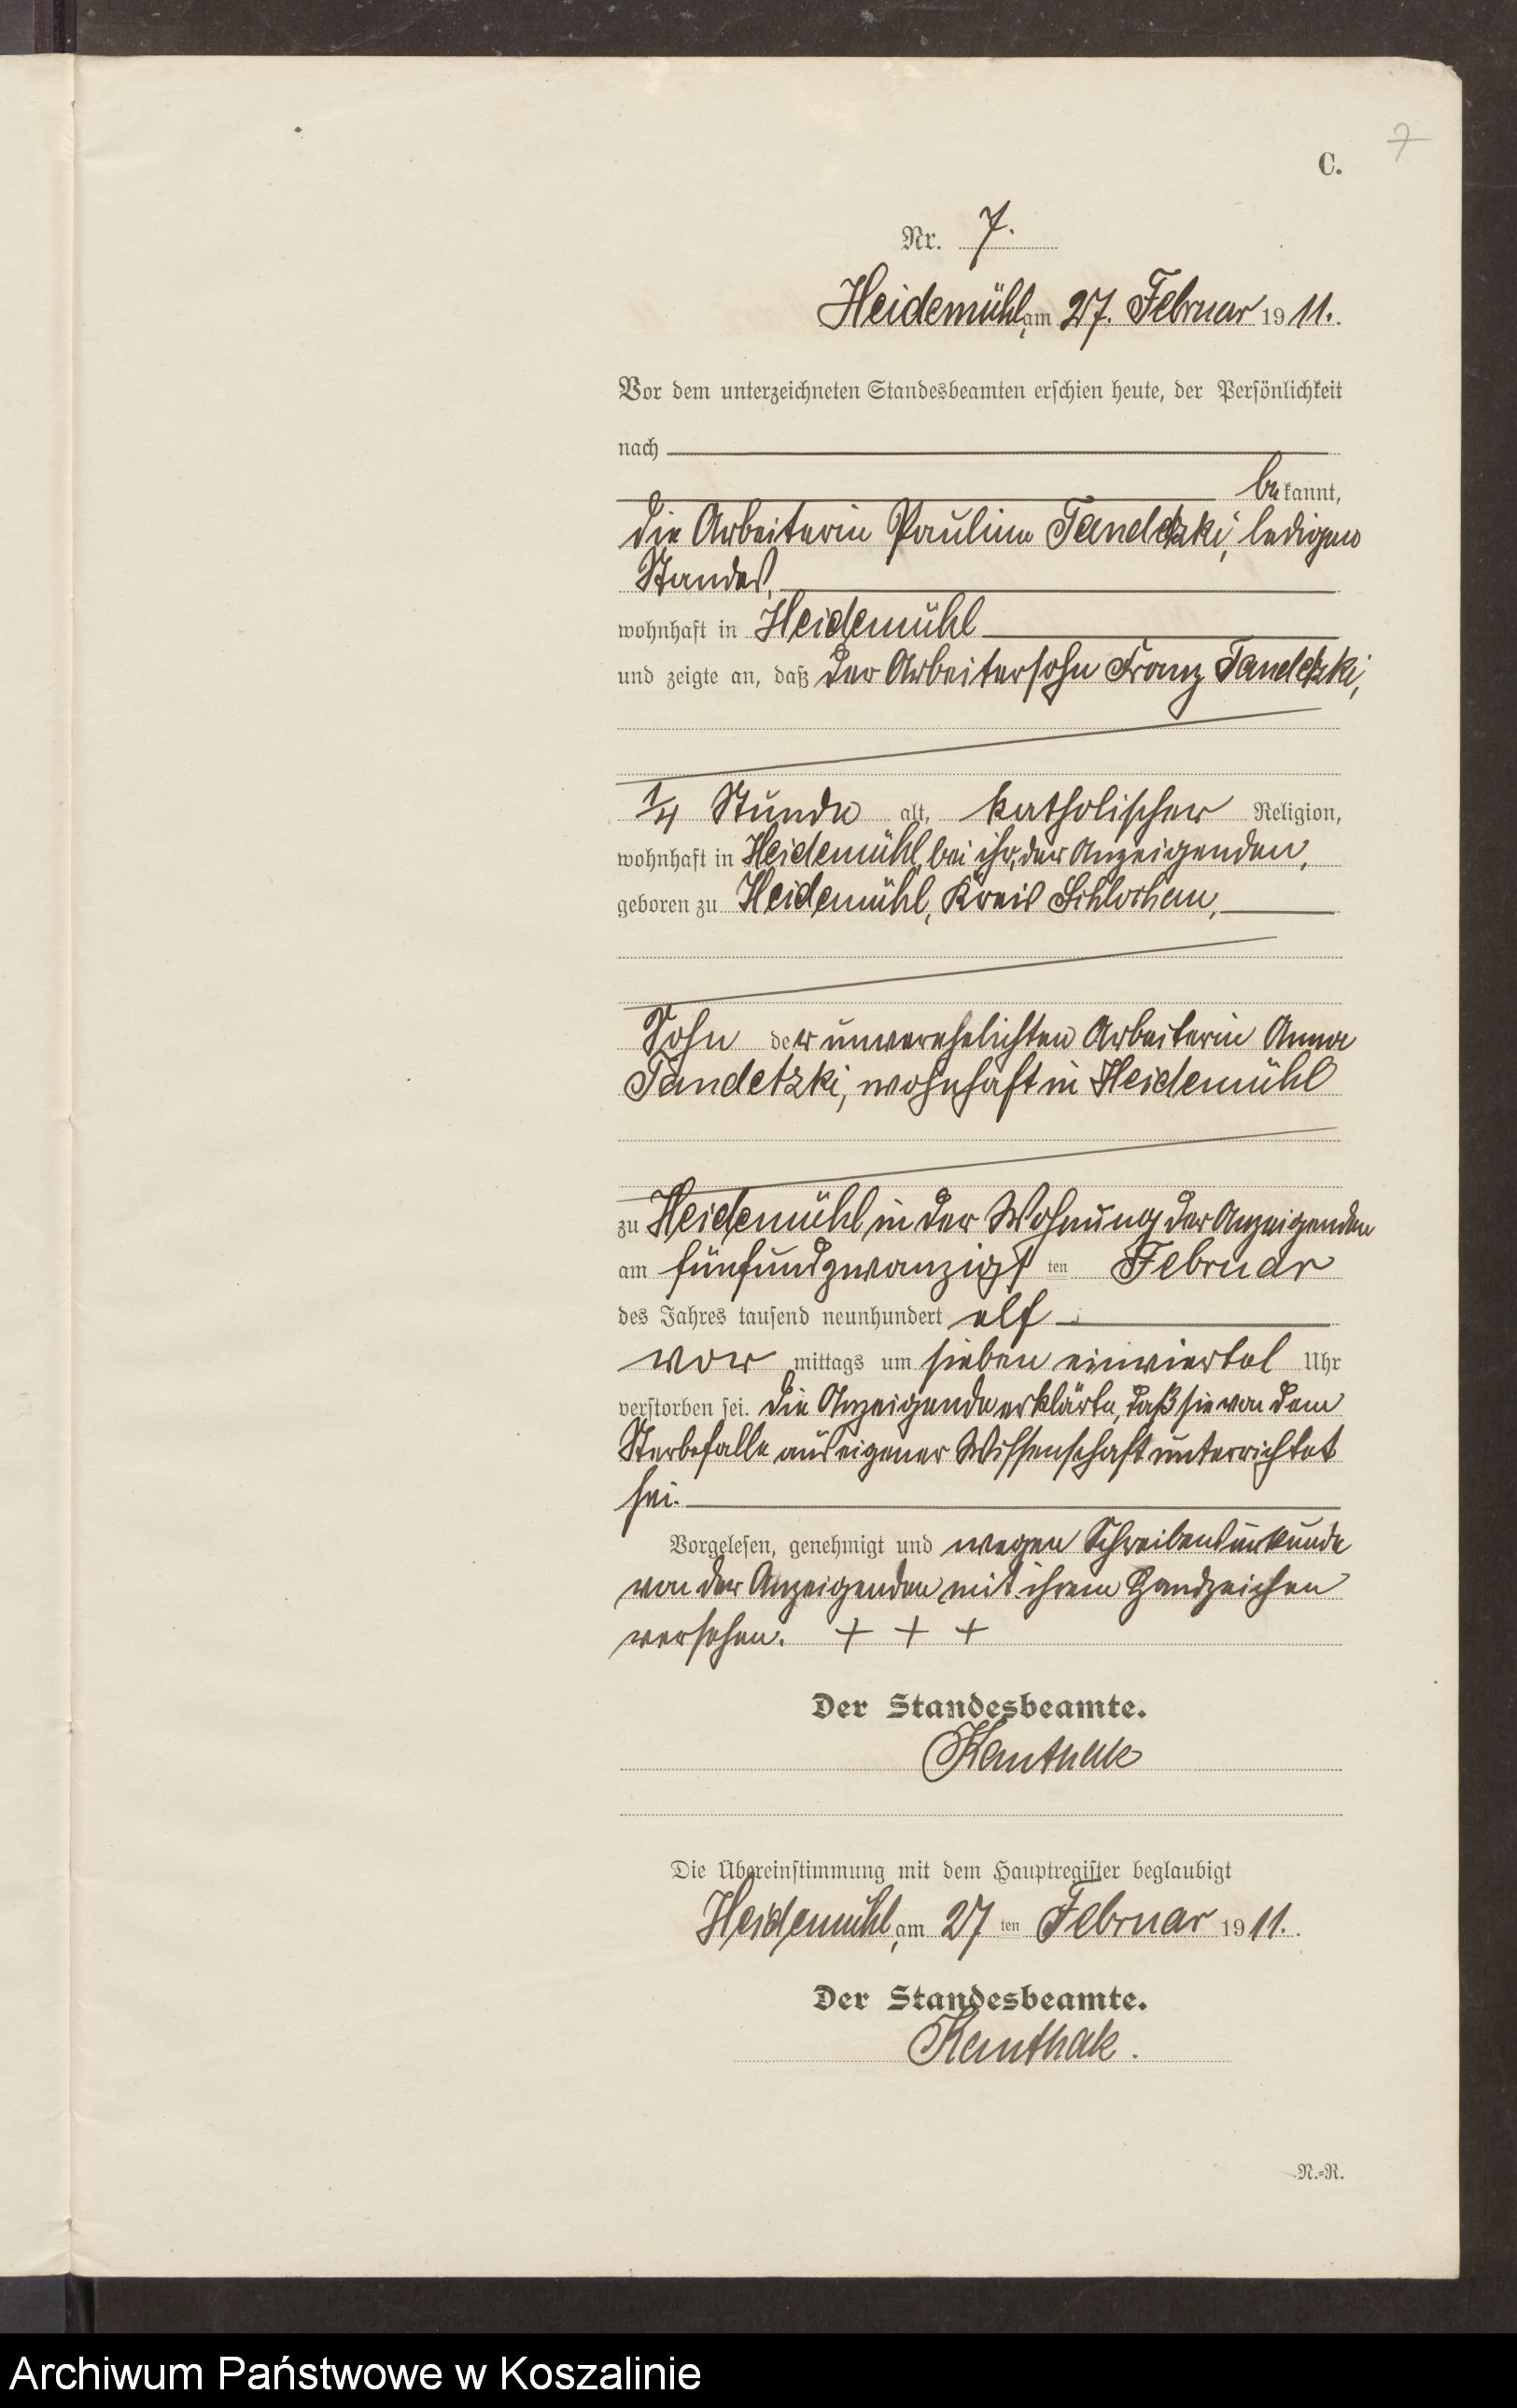 7
C.
Nr. 7.
Heidemühl, am 27. Februar 1911.
Vor dem unterzeichneten Standesbeamten erschien heute, der Persönlichkeit
nach
bekannt,
die Arbeiterin Pauline Tandetzki, ledigen
Standes,
wohnhaft in Heidemühl
und zeigte an, daß der Arbeitersohn Franz Tandetzki,
1/4 Stunde alt, katholischer Religion,
wohnhaft in Heidemühl, bei ihr, der Anzeigenden,
geboren zu Heidemühl, Kreis Schlochau,
Sohn der unverehelichten Arbeiterin Anna
Tandetzki, wohnhaft in Heidemühl
zu Heidemühl in der Wohnung der Anzeigenden
am fünfundzwanzigsten Februar
des Jahres tausend neunhundert elf
vormittags um sieben einviertel Uhr
verstorben sei. Die Anzeigende erklärte, daß sie von dem
Sterbefalle aus eigener Wissenschaft unterrichtet
sei.
Vorgelesen, genehmigt und wegen Schreibensunkunde
von der Anzeigenden mit ihrem Handzeichen
versehen. + + +
Der Standesbeamte.
Kanthak
Die Übereinstimmung mit dem Hauptregister beglaubigt
Heidemühl, am 27ten Februar 1911.
Der Standesbeamte.
Kanthak.
N.=R.
Archiwum Państwowe w Koszalinie